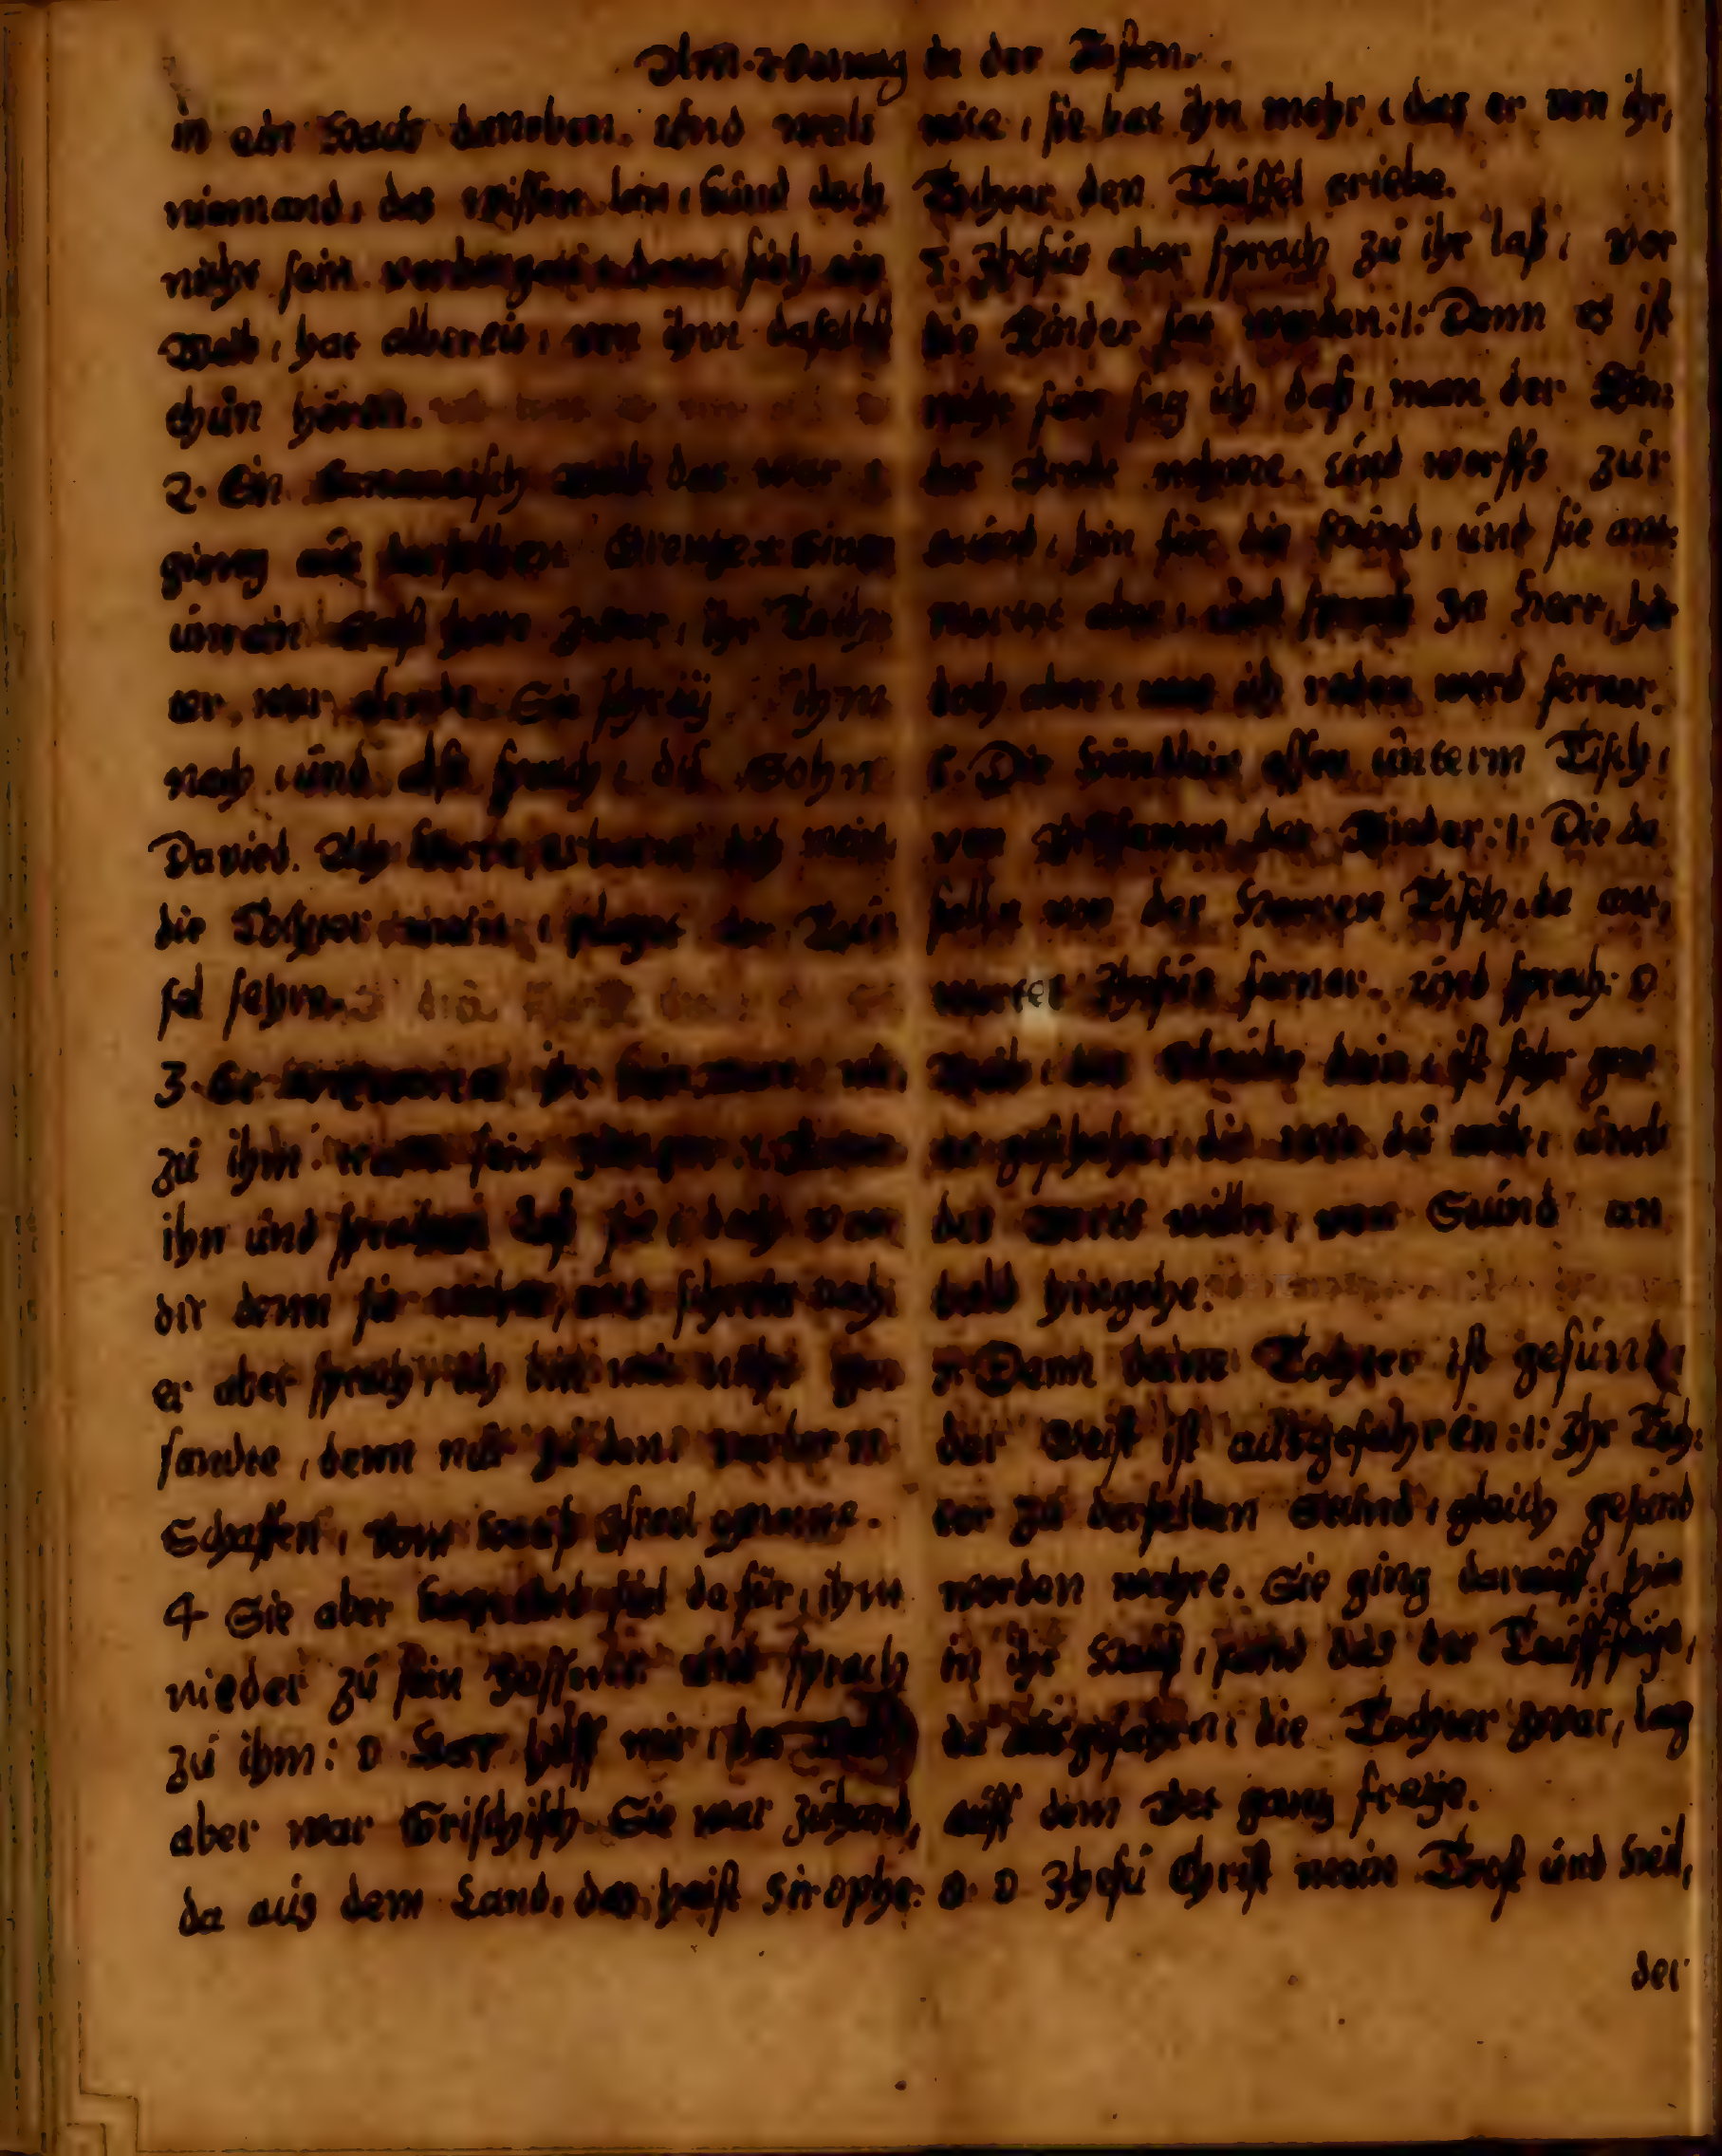 Am. 2 Sontag in der Fasten.
in ein Hauß daneben. Und wolt
niemand, das wissen lan, kund doch
nicht sein verborgen denn sich ein
Weib, hat allbereit, von ihm daselbst
thun hören.
2. Ein Cananaisch weib das war
gieng aus derselben Grentze
unrein Geist hatt zwar, ihr Tochter
Sie schrey ihm
nach und also sprach, du Sohn
Davied. Ach Herre, erbarm dich mein
die Tochter mein, plaget der Teu
fel sehre.
3. Er antwortet ihr kein wort
zu ihm tratten sein Jünger
ihn und sprachen laß sie doch von
dir denn sie uns schreit nach
er aber sprach, ich bin nicht ge
sandte, denn nur zu den verlorn
Schaffen, vom Hauß Israel genante.
4 Sie aber dafür, ihm
nieder zu sein Füssen und sprach
zu ihm: O Herr hilff mir, das weib
aber war Grischisch Sie war zuhand,
da aus dem Land, das heist Sirophe:
nice, sie bat ihn mehr, das er von ihr,
Tochter den Teuffel triebe.
5. Jhesus aber sprach zu ihr laß, vor
die Kinder sat werden :/: Denn es ist
nicht fein sag ich daß, man der Kin:
der Brodt nehme. und werffs zur
stund, hin für die Hund, und sie ant:
wortet aber, und sprach Ja Herr, hör
doch aber, was ich reden werd ferner.
6. Die Hündlein essen unterm Tisch,
von Brosamen der Kinder :/: Die da
falln von der Herren Tisch, da ant,
wortet Jhesus ferner. und sprach: O
Weib, der Glaube dein, ist sehr gros
es geschehe, dir wie du wilt, umb
des worts willn, von Stund an
bald hingehe.
7. Denn deine Tochter ist gesund,
der Geist ist ausgefahren :/: Ihr Toch:
ter zu derselben Stund, gleich gesund
worden wahre. Sie ging darauff, hin
in ihr Hauß, fand das der Teuffel seye,
da ausgefahrn, die Tochter zwar, lag
auff dem Bet gantz freye.
8. O Jhesu Christ mein Trost und Heil,
der